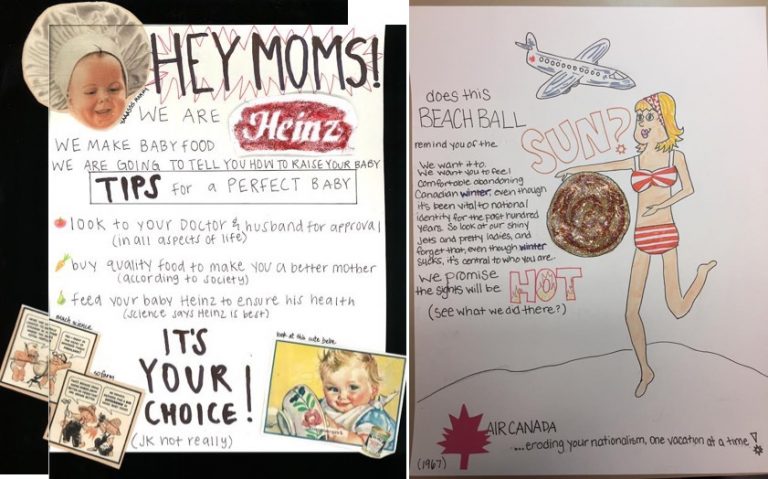 HEY MOMS!
WE ARE Heinz
WE MAKE BABY FOOD
WE ARE GOING TO TELL YOU HOW TO RAISE YOUR BABY
TIPS for a PERFECT BABY
look to your Doctor & husband for approval
(in all aspects of life)
buy quality food to make you a better mother
(according to society)
feed your baby Heinz to ensure his health
(science says Heinz is best)
much science
so farm
IT'S
YOUR
CHOICE!
(JK not really)
look at this cute bebe
does this
BEACH BALL
remind you of the
SUN?
We want it to.
We want you to feel
comfortable abandoning
Canadian winter, even though
it's been vital to national
identity for the past hundred
years. So look at our shiny
jets and pretty ladies, and
forget that, even though winter
sucks, it's central to who you are.
we promise
the sights will be HOT
(see what we did there?)
AIR CANADA
...eroding your nationalism, one vacation at a time!
(1967)